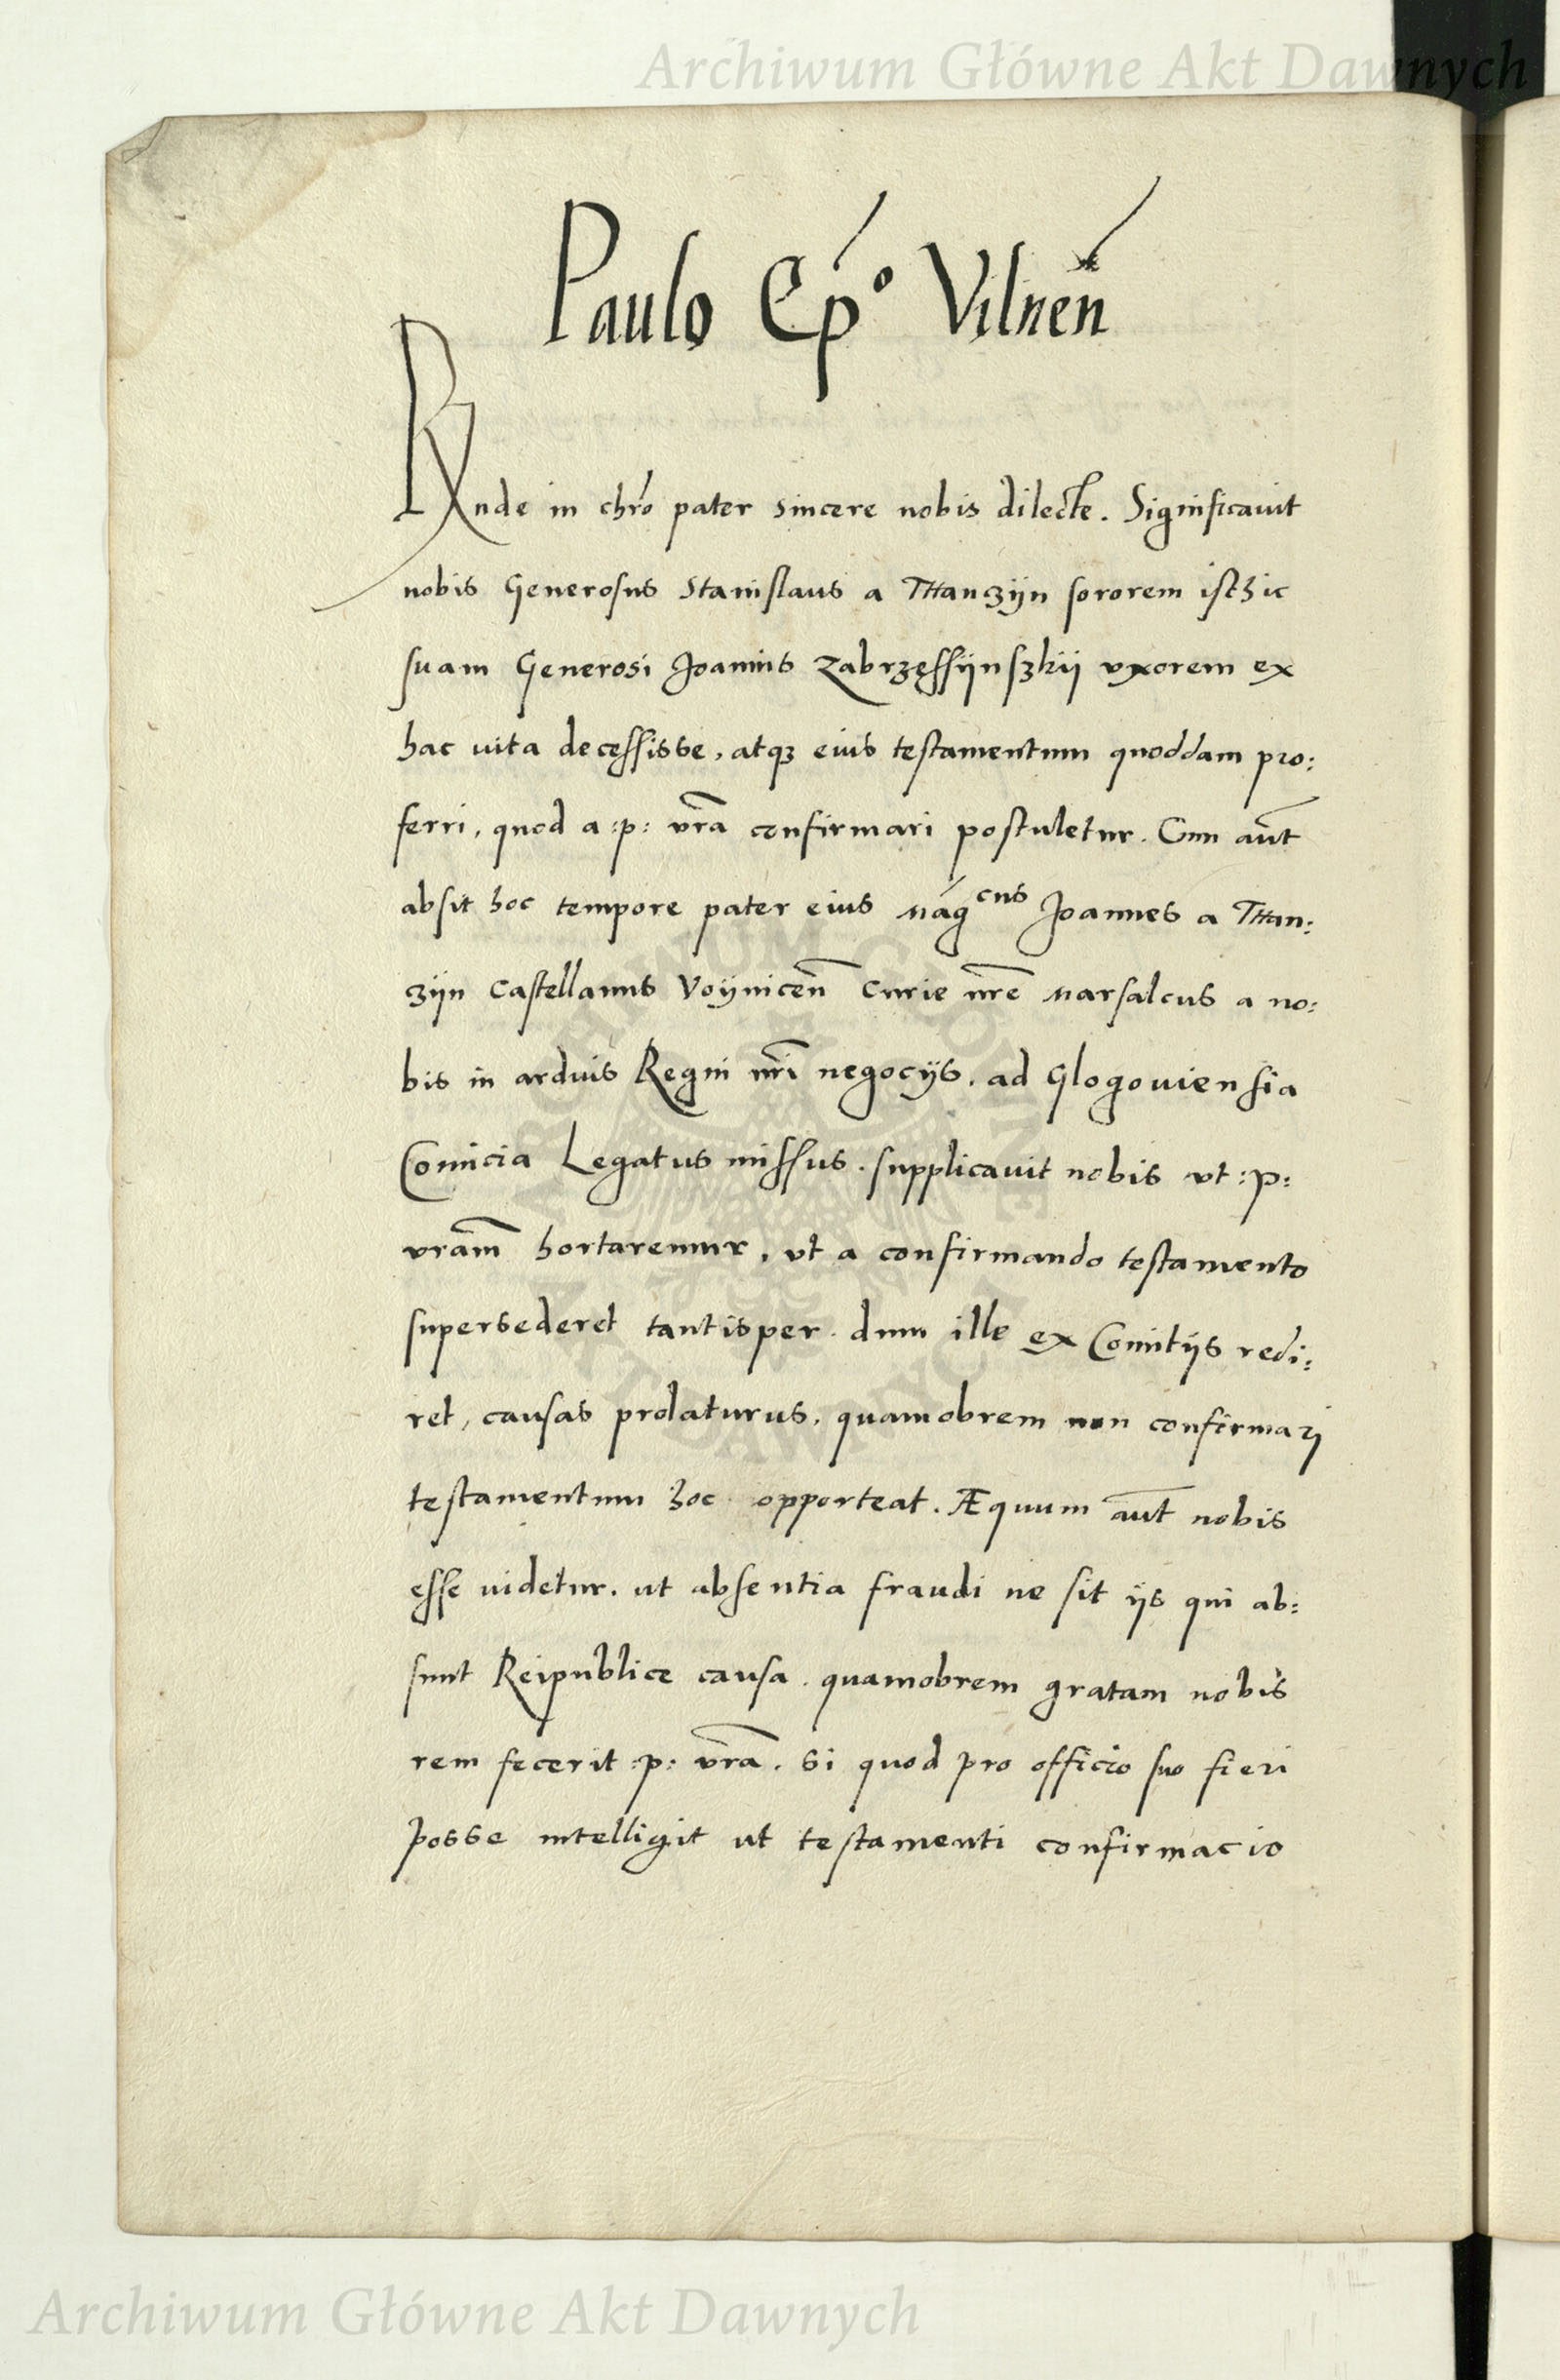 Archiwum Główne Akt Dawnych
Paulo Ep̄o Vilneñ
Rnde in chrō pater sincere nobis dilecte. Significauit
nobis Generosus Stanislaus a Thanczijn sororem isthic
suam Generosi Joannis Zabrzęssijnszkij vxorem ex
hac uita decęssisse, atqꝫ eius testamentum quoddam pro:
ferri, quod a :p: vrā confirmari postuletur. Cum aūt
absit hoc tempore pater eius Mágcus Joannes a Than:
czijn Castellanus Voijnicen̄ Curie nrē Marsalcus a no:
bis in arduis Regni nrī negocijs, ad Glogouiensia
Comicia Legatus missus. supplicauit nobis vt :p:
vram̄ hortaremur, vt a confirmando testamento
supersederet tantisper. dum ille ex Comitijs redi:
ret, causas prolaturus, quamobrem non confirmari
testamentum hoc opporteat. Æquum aūt nobis
esse uidetur. ut absentia fraudi ne sit ijs qui ab:
sunt Reipublicę causa. quamobrem gratam nobis
rem fecerit :p: vrā. Si quod pro officio suo fieri
posse intelligit ut testamenti confirmacio
ARCHIWUM GŁÓWNE AKT DAWNYCH
Archiwum Główne Akt Dawnych